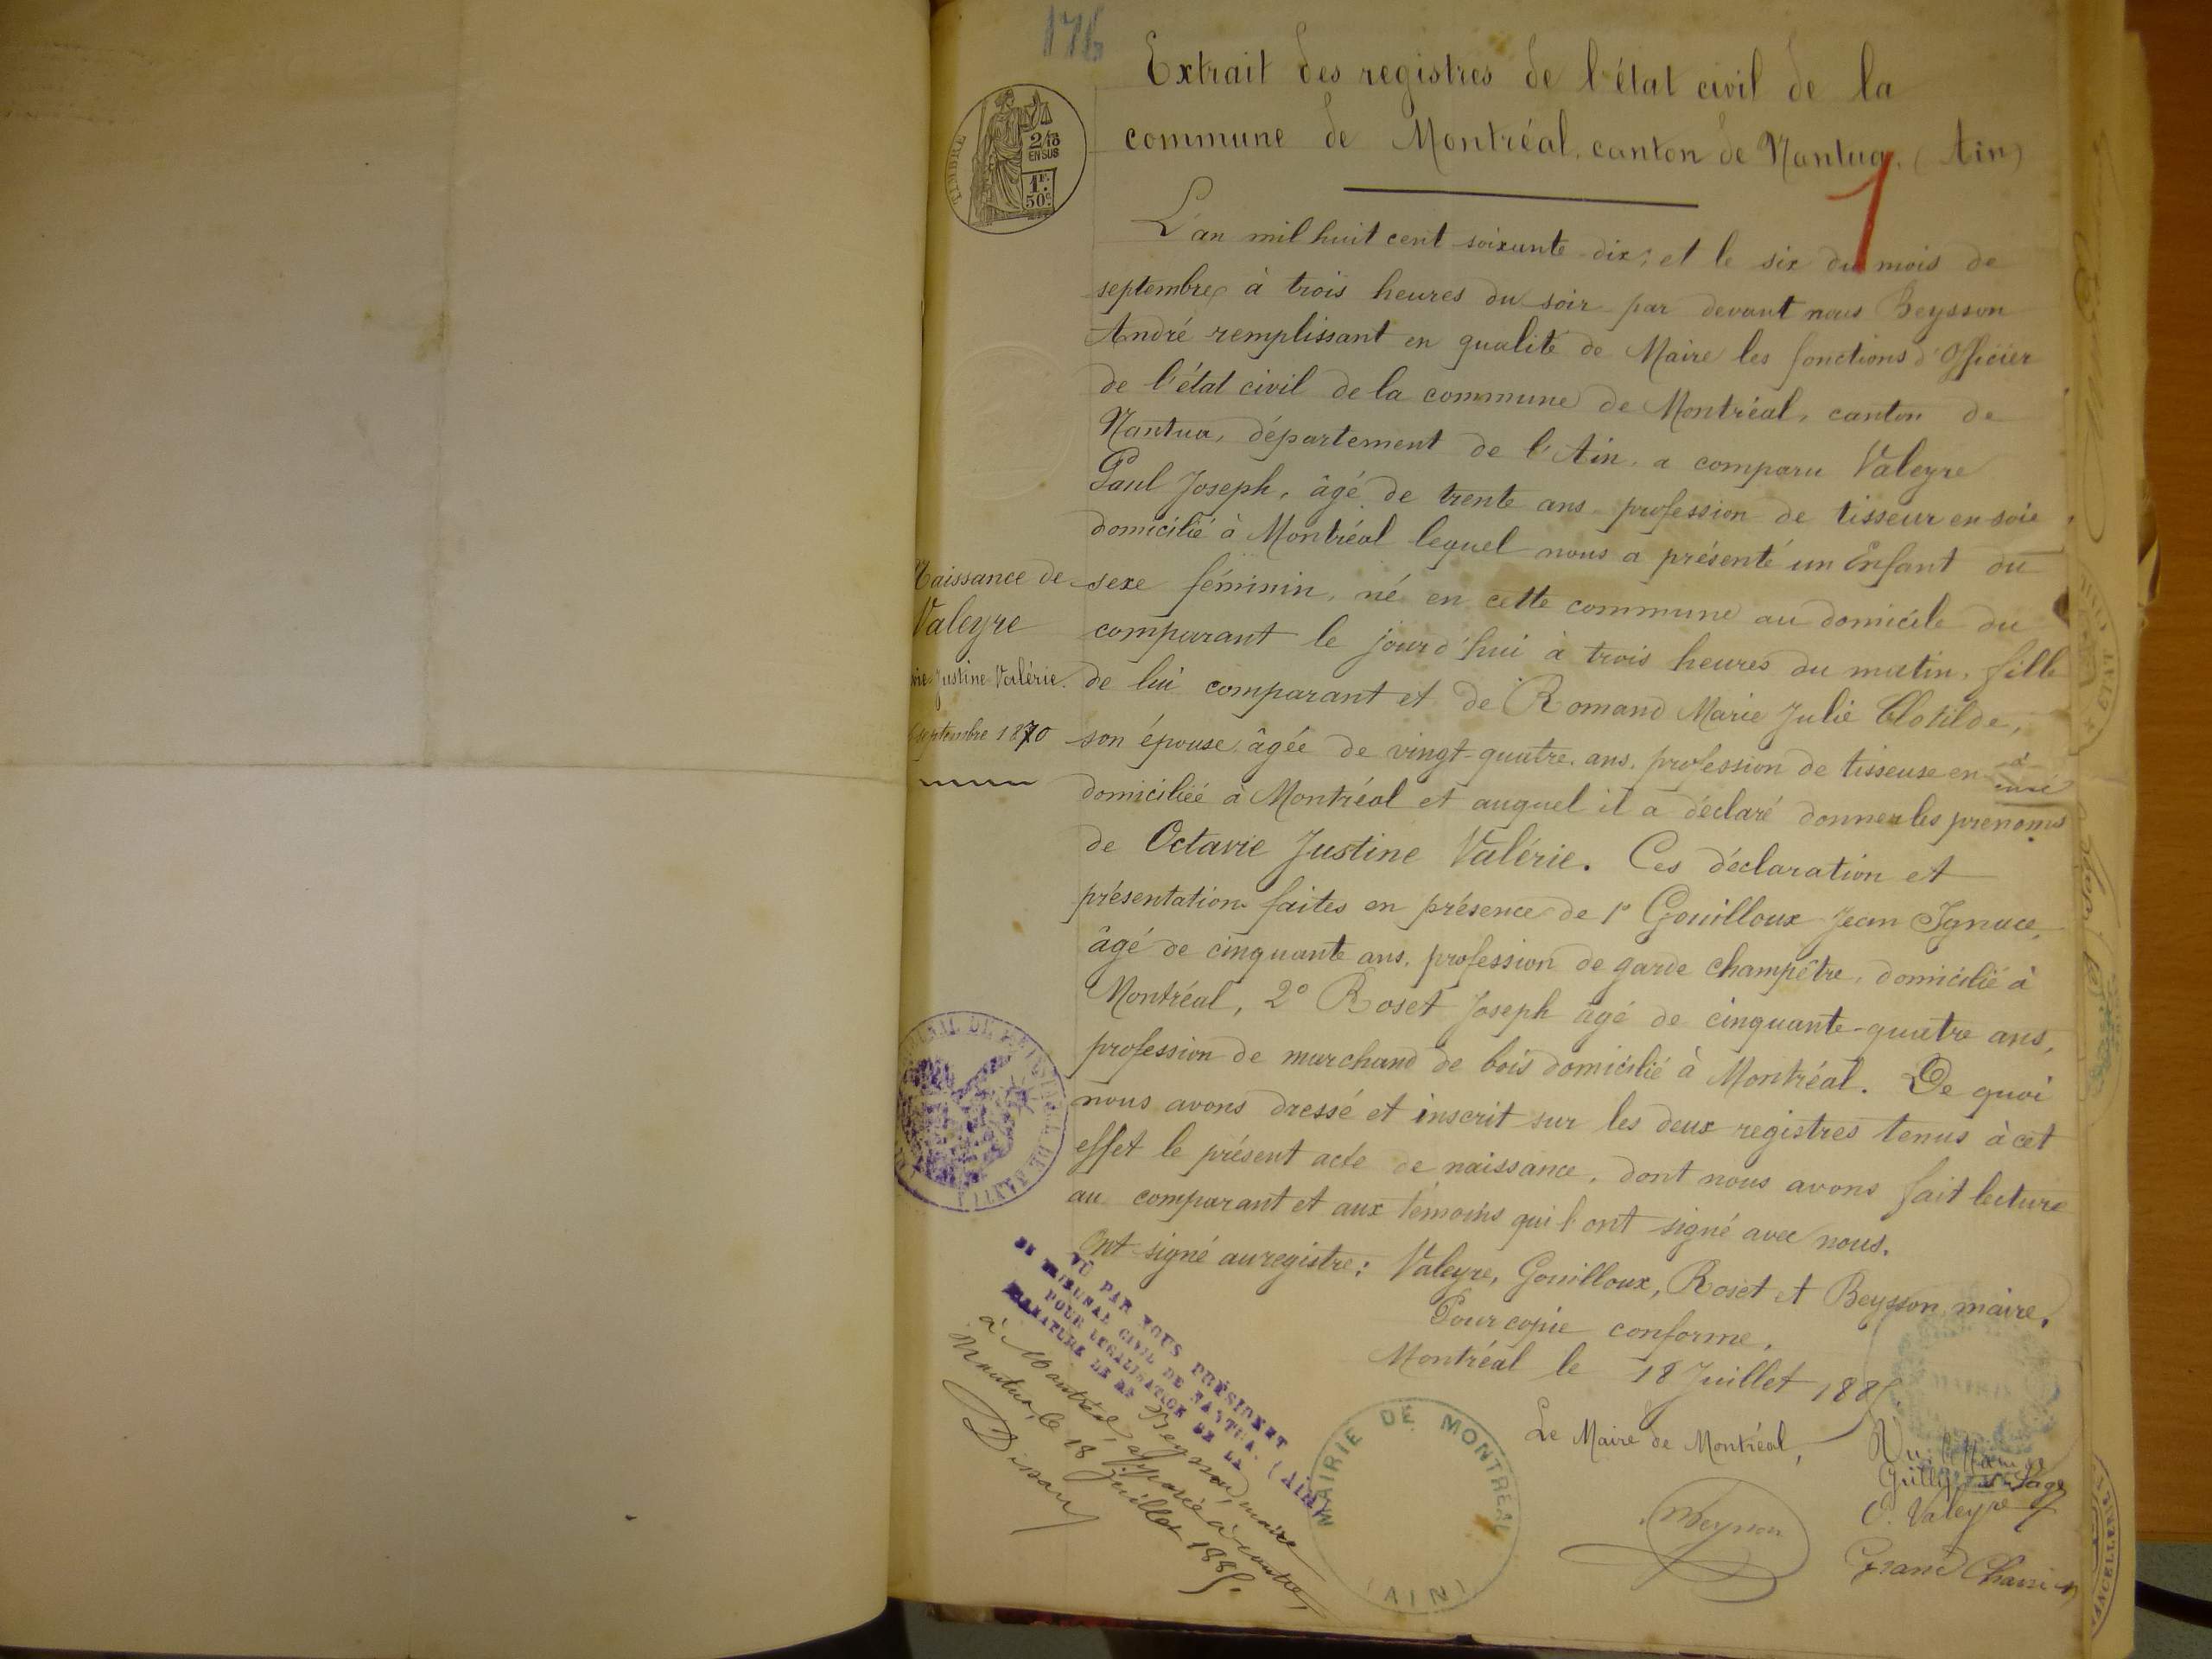 176
Extrait des registres de l'état civil de la
commune de Montréal, canton de Nantua. (Ain)
TIMBRE
2/10
EN SUS
1F.
50c.
1
L'an mil huit cent soixante-dix; et le six du mois de
septembre à trois heures du soir par devant nous Beysson
André remplissant en qualité de Maire les fonctions d'Officier
de l'état civil de la commune de Montréal, canton de
Nantua, département de l'Ain, a comparu Valeyre
Paul Joseph, âgé de trente ans profession de tisseur en soie
domicilié à Montréal lequel nous a présenté un Enfant du
sexe féminin, né en cette commune au domicile du
comparant le jourd'hui à trois heures du matin, fille
de lui comparant et de Romand Marie Julie Clotilde,
son épouse, âgée de vingt-quatre ans, profession de tisseuse en
domiciliée à Montréal et auquel il a déclaré donner les prénoms
de Octavie Justine Valérie. Ces déclaration et
présentation faites en présence de 1° Gouilloux Jean Ignace,
âgé de cinquante ans, profession de garde champêtre, domicilié à
Montréal, 2° Roset Joseph âgé de cinquante-quatre ans,
profession de marchand de bois domicilié à Montréal. De quoi
nous avons dressé et inscrit sur les deux registres tenus à cet
effet le présent acte de naissance, dont nous avons fait lecture
au comparant et aux témoins qui l'ont signé avec nous.
Ont signé au registre: Valeyre, Gouilloux, Roset et Beysson, maire.
Pour copie conforme,
Montréal le 18 Juillet 188
Le Maire de Montréal,
Beysson
Naissance de
Valeyre
Justine Valérie.
septembre 1870
VU PAR NOUS PRÉSIDENT
DU TRIBUNAL CIVIL DE NANTUA. (AIN)
POUR LEGALISATION DE LA
SIGNATURE DE M. Beysson, maire
à Montréal, apposée ci-contre,
Nantua, le 18 Juillet 1885.
MAIRIE DE MONTREAL
(AIN)
C. Valeyre
Grand